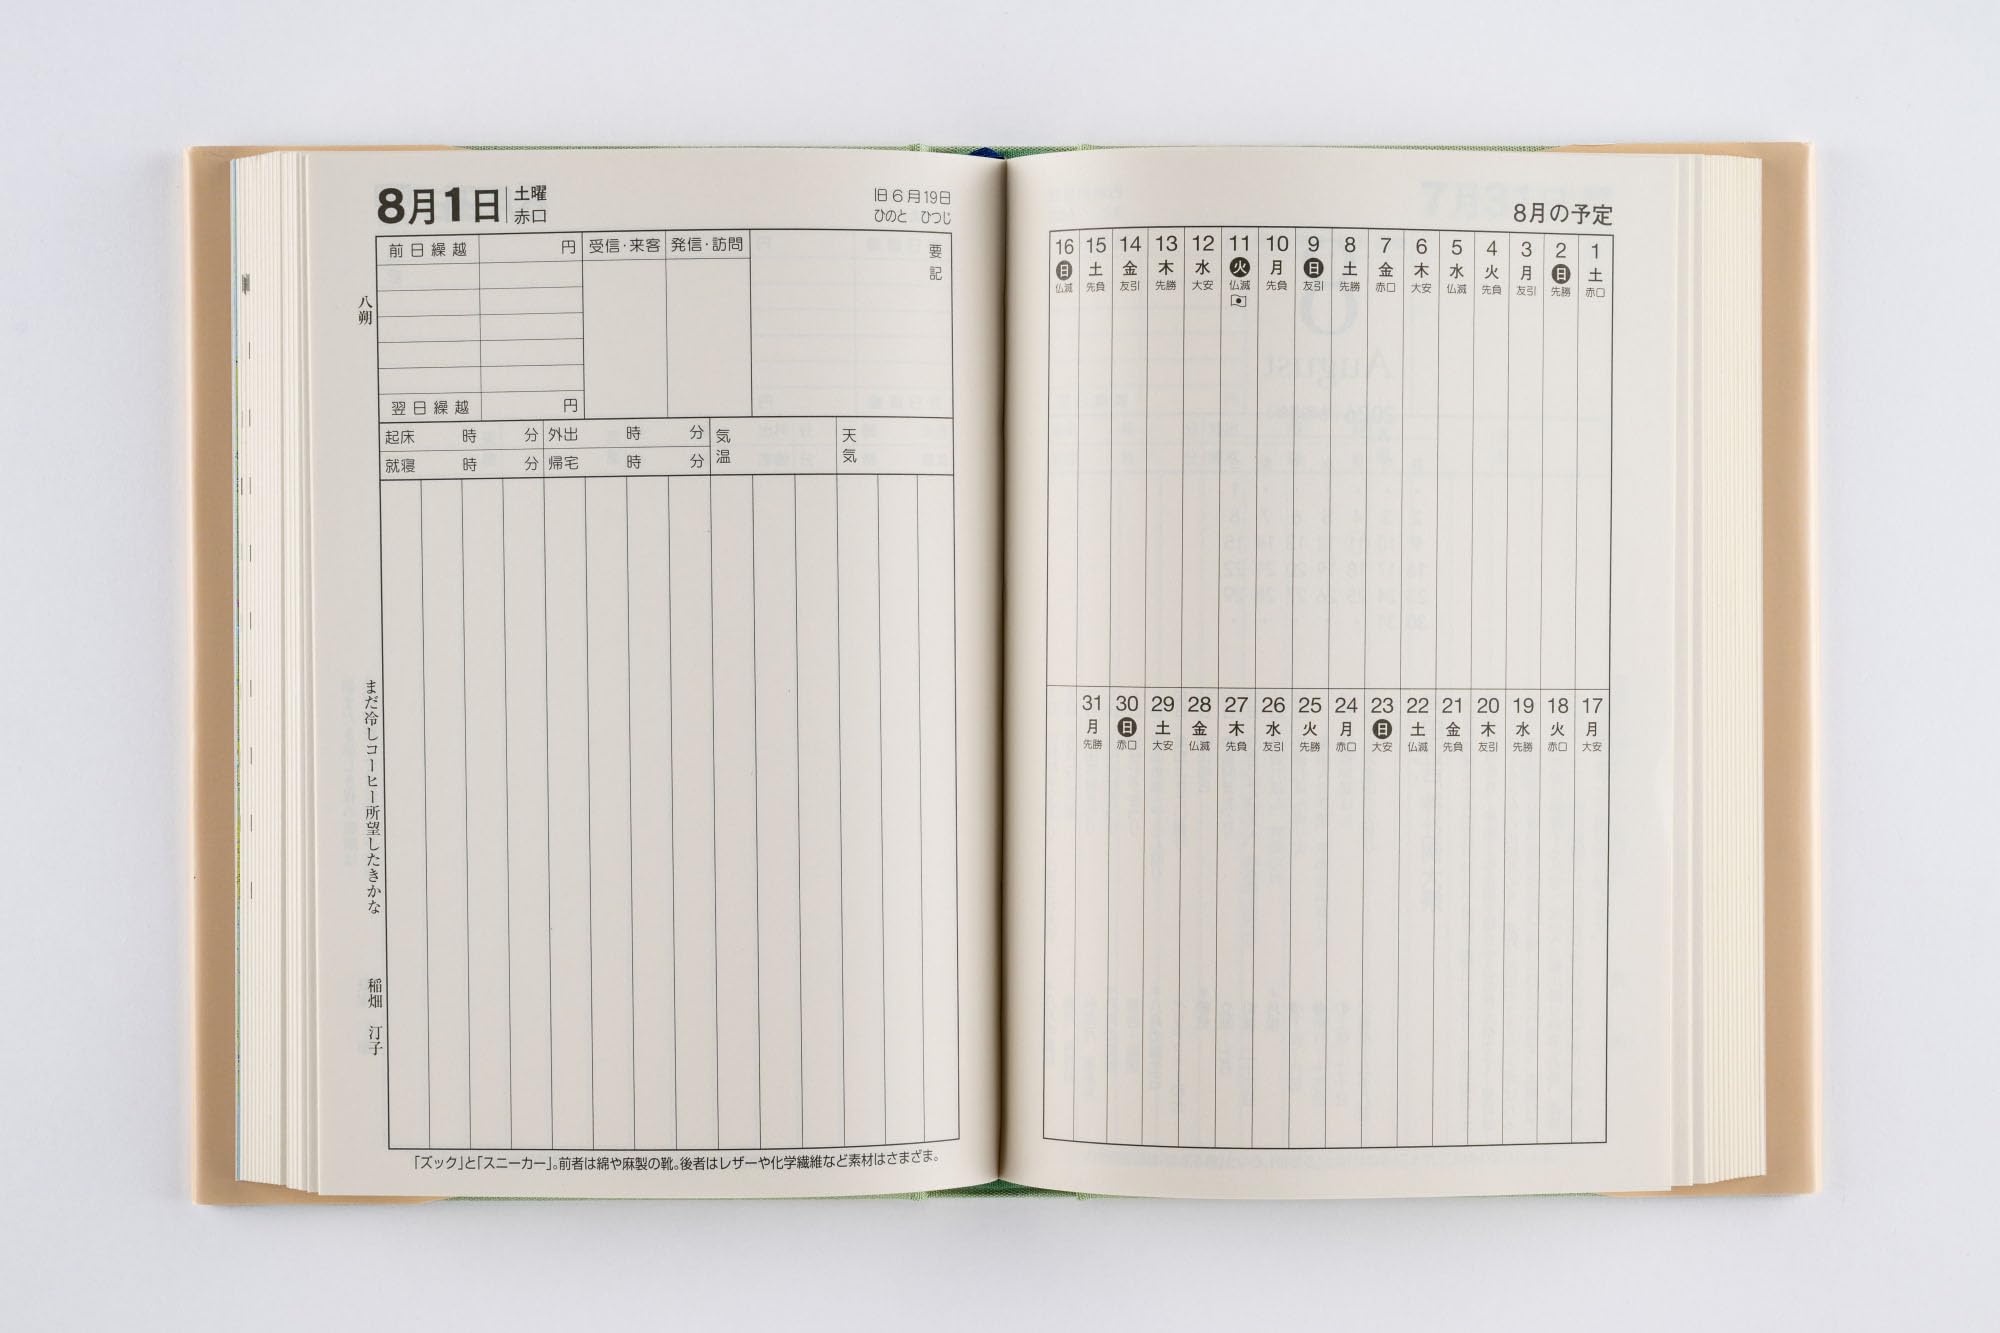 8月の予定
1 土 赤口
2 日 先勝
3 月 友引
4 火 先負
5 水 仏滅
6 木 大安
7 金 赤口
8 土 先勝
9 日 友引
10 月 先負
11 火 仏滅
12 水 大安
13 木 先勝
14 金 友引
15 土 先負
16 日 仏滅
17 月 大安
18 火 赤口
19 水 先勝
20 木 友引
21 金 先負
22 土 仏滅
23 日 大安
24 月 赤口
25 火 先勝
26 水 友引
27 木 先負
28 金 仏滅
29 土 大安
30 日 赤口
31 月 先勝
8月1日 土曜 赤口
旧6月19日
ひのと ひつじ
前日繰越 円
受信・来客
発信・訪問
要記
翌日繰越 円
起床 時 分
外出 時 分
就寝 時 分
帰宅 時 分
気温
天気
八朔
まだ冷しコーヒー所望したきかな 稲畑 汀子
「ズック」と「スニーカー」。前者は綿や麻製の靴。後者はレザーや化学繊維など素材はさまざま。